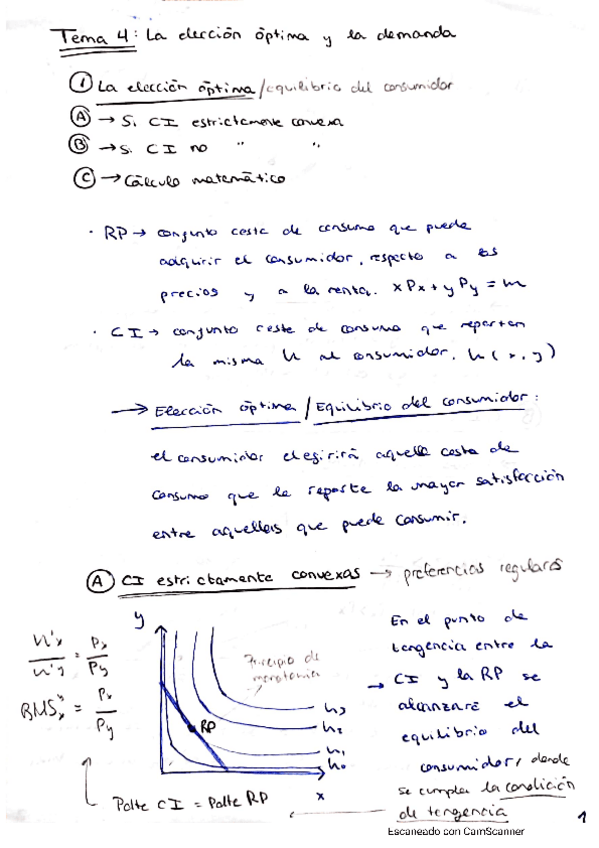 Tema 4: La elección óptima y la demanda
① La elección óptima/equilibrio del consumidor
Ⓐ → Si CI estrictamente convexa
Ⓑ → Si CI no " "
Ⓒ → Cálculo matemático
· RP → conjunto cesta de consumo que puede
adquirir el consumidor, respecto a los
precios y a la renta. xPx + yPy = m
· CI → conjunto ceste de consumo que reportan
la misma U al consumidor. U(x,y)
→ Elección óptima / Equilibrio del consumidor:
el consumidor elegirá aquella cesta de
consumo que le reporte la mayor satisfacción
entre aquellas que puede consumir.
Ⓐ CI estrictamente convexas → preferencias regulares
U'x / U'y = Px / Py
= Px / Py
y
Principio de
monotonía
RP
U3
U2
U1
U0
x
Pdte CI = Pdte RP
En el punto de
tangencia entre la
→ CI y la RP se
alcanzará el
equilibrio del
consumidor, donde
se cumpla la condición
de tangencia
1
Escaneado con CamScanner